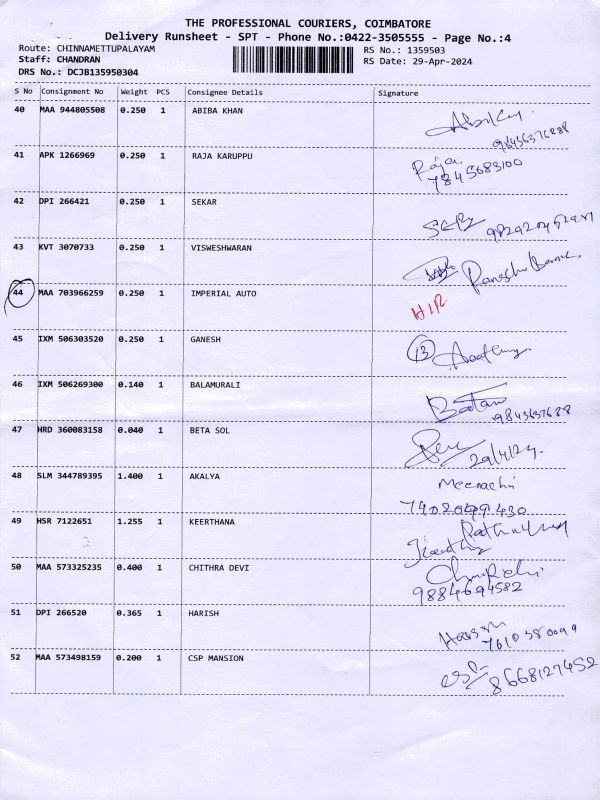 THE PROFESSIONAL COURIERS, COIMBATORE
Delivery Runsheet - SPT - Phone No.:0422-3505555 - Page No.:4
Route: CHINNAMETTUPALAYAM RS No.: 1359503
Staff: CHANDRAN RS Date: 29-Apr-2024
DRS No.: DCJB135950304
S No Consignment No Weight PCS Consignee Details Signature
40 MAA 944805508 0.250 1 ABIBA KHAN
41 APK 1266969 0.250 1 RAJA KARUPPU Raja
7845683100
42 DPI 266421 0.250 1 SEKAR
43 KVT 3070733 0.250 1 VISWESHWARAN
44 MAA 703966259 0.250 1 IMPERIAL AUTO
45 IXM 506303520 0.250 1 GANESH 13
46 IXM 506269300 0.140 1 BALAMURALI
9843637688
47 HRD 360083158 0.040 1 BETA SOL
29/4/24
48 SLM 344789395 1.400 1 AKALYA Meenachi
49 HSR 7122651 1.255 1 KEERTHANA
50 MAA 573325235 0.400 1 CHITHRA DEVI
9884694582
51 DPI 266520 0.365 1 HARISH
52 MAA 573498159 0.200 1 CSP MANSION CSP
8668127452